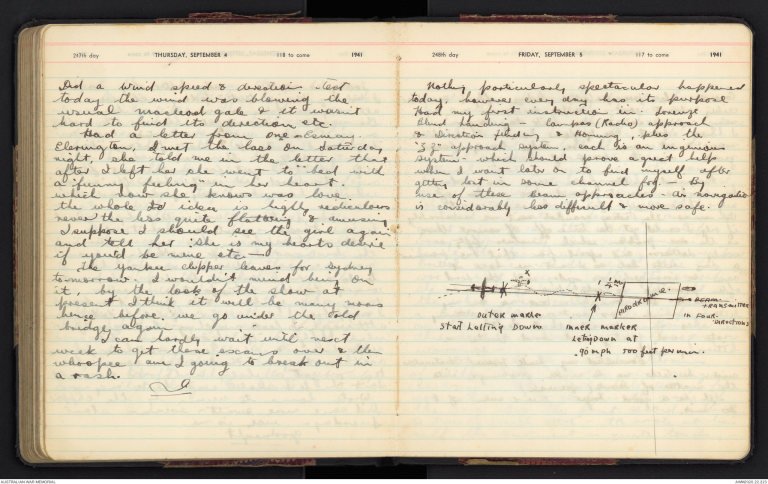 247th day THURSDAY, SEPTEMBER 4 118 to come 1941
Did a wind speed & direction test
today the wind was blowing the
usual gale & it wasn't
hard to find its direction etc.
Had a letter from one
I met the lass on Saturday
night, she told me in the letter that
after I left her she went to bed with
a "funny feeling" in her heart.
which now she knows was love
the whole idea is highly rediculous
never the less quite flattering & amusing
I suppose I should see the girl again
and tell her She is my hearts desire
if you'd be mine etc —
The Yankee clipper leaves for Sydney
tomorrow. I wouldn't mind being on
it, by the look of the show at
present I think it will be many moons
hence before we go under the "old
bridge again"
I can hardly wait until next
week to get these exams over & then
whoopee am I going to break out in
a rash.
248th day FRIDAY, SEPTEMBER 5 117 to come 1941
Nothing particularly spectacular happened
today, however every day has its purpose
Had my first instruction in Lorenz
Blind Landing (Radio) approach
& Direction finding & Homing, plus the
approach system, each is an ingenious
system which should prove a great help
when I want later on to find myself after
getting lost in some channel fog. — By
use of these beam approaches air navigation
is considerably less difficult & more safe.
AERODROME.
BEAM
TRANSMITTER
IN FOUR
DIRECTIONS
outer marker
Start Letting Down
inner marker
Letting Down at
90 mph 500 feet per min.
AUSTRALIAN WAR MEMORIAL